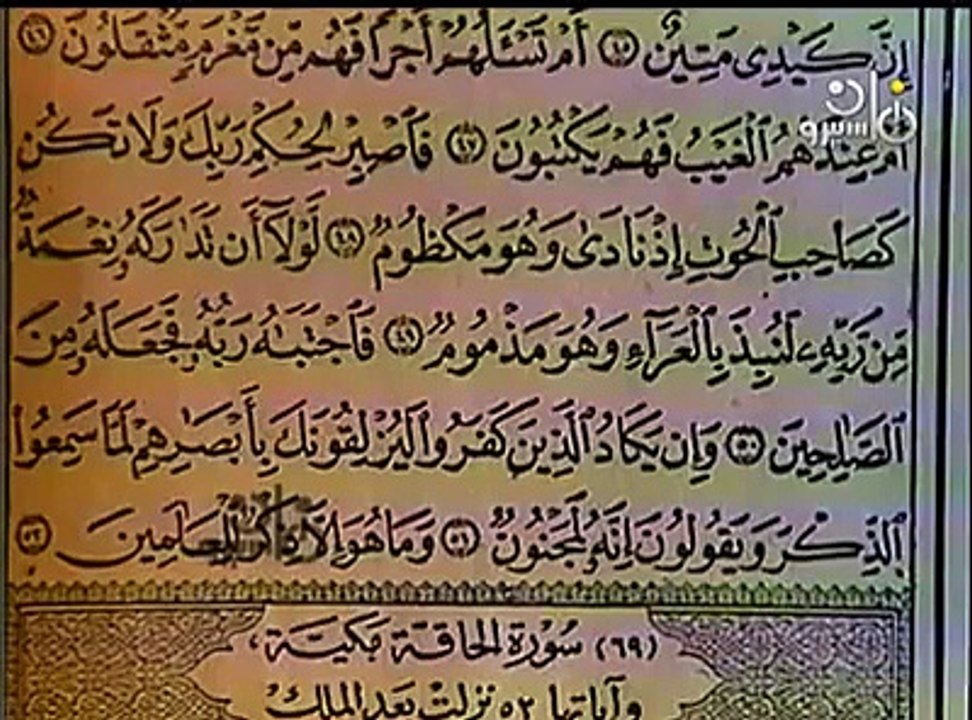 إِنَّ كَيْدِى مَتِينٌ ٤٥ أَمْ تَسْـَٔلُهُمْ أَجْرًا فَهُم مِّن مَّغْرَمٍ مُّثْقَلُونَ ٤٦
أَمْ عِندَهُمُ ٱلْغَيْبُ فَهُمْ يَكْتُبُونَ ٤٧ فَٱصْبِرْ لِحُكْمِ رَبِّكَ وَلَا تَكُن
كَصَاحِبِ ٱلْحُوتِ إِذْ نَادَىٰ وَهُوَ مَكْظُومٌ ٤٨ لَّوْلَآ أَن تَدَٰرَكَهُۥ نِعْمَةٌ
مِّن رَّبِّهِۦ لَنُبِذَ بِٱلْعَرَآءِ وَهُوَ مَذْمُومٌ ٤٩ فَٱجْتَبَٰهُ رَبُّهُۥ فَجَعَلَهُۥ مِنَ
ٱلصَّٰلِحِينَ ٥٠ وَإِن يَكَادُ ٱلَّذِينَ كَفَرُوا۟ لَيُزْلِقُونَكَ بِأَبْصَٰرِهِمْ لَمَّا سَمِعُوا۟
ٱلذِّكْرَ وَيَقُولُونَ إِنَّهُۥ لَمَجْنُونٌ ٥١ وَمَا هُوَ إِلَّا ذِكْرٌ لِّلْعَٰلَمِينَ ٥٢
(٦٩) سُورَةُ الحَاقَّةِ مَكِّيَّة،
وآياتها ٥٢ نزلت بعد الملك